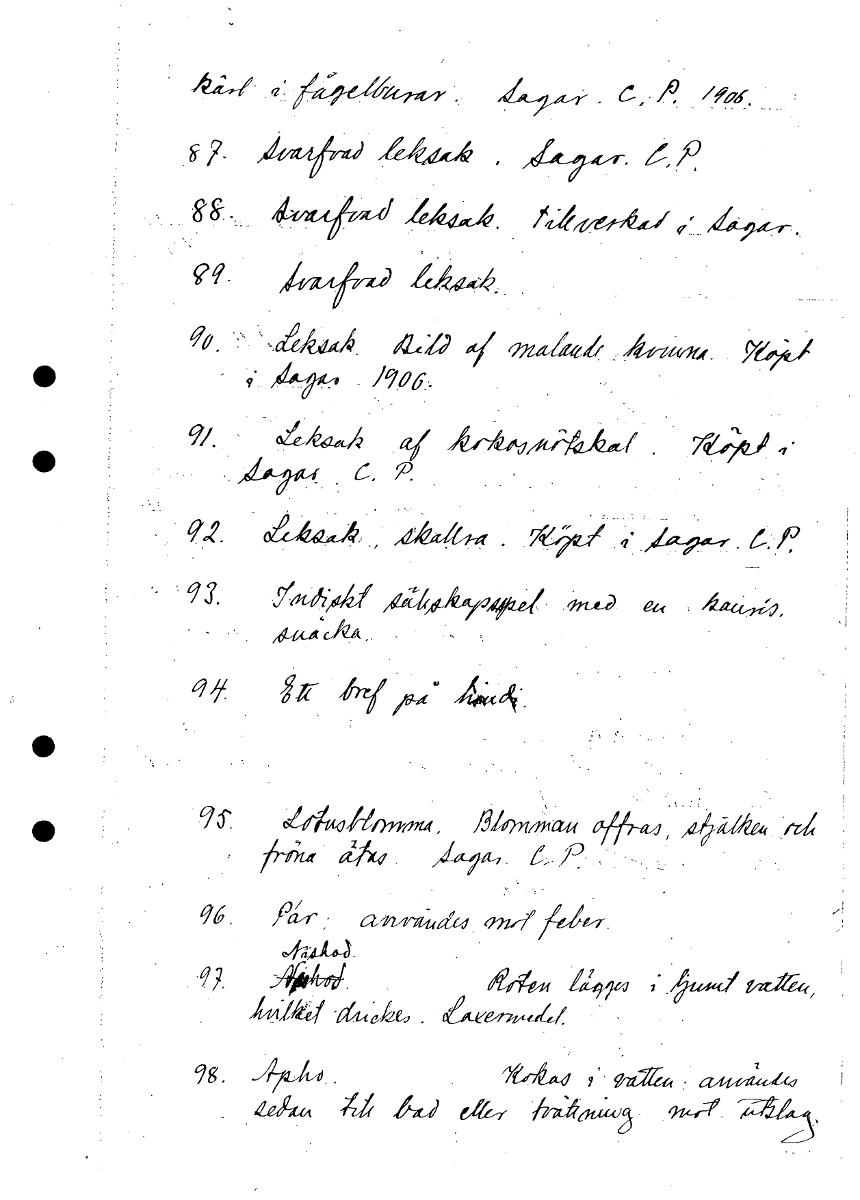 kärl i fågelburar. Sagar. C. P. 1906.
87. Svarfvad leksak. Sagar. C.P.
88. Svarfvad leksak. Tillverkad i Sagar.
89. Svarfvad leksak.
90. Leksak. Bild af malande kvinna. Köpt
i Sagar 1906.
91. Leksak af kokosnötskal. Köpt i
Sagar C. P.
92. Leksak, skallra. Köpt i Sagar. C.P.
93. Indiskt sällskapsspel med en kauris.
snäcka.
94. Ett bref på hindi.
95. Lotusblomma. Blomman offras, stjälken och
fröna ätas. Sagar. C. P.
96. Pár: användes mot feber.
Náshod.
97. Roten lägges i ljumt vatten,
hvilket drickes. Laxermedel.
98. Apho. Kokas i vatten: användes
sedan till bad eller tvättning mot utslag.